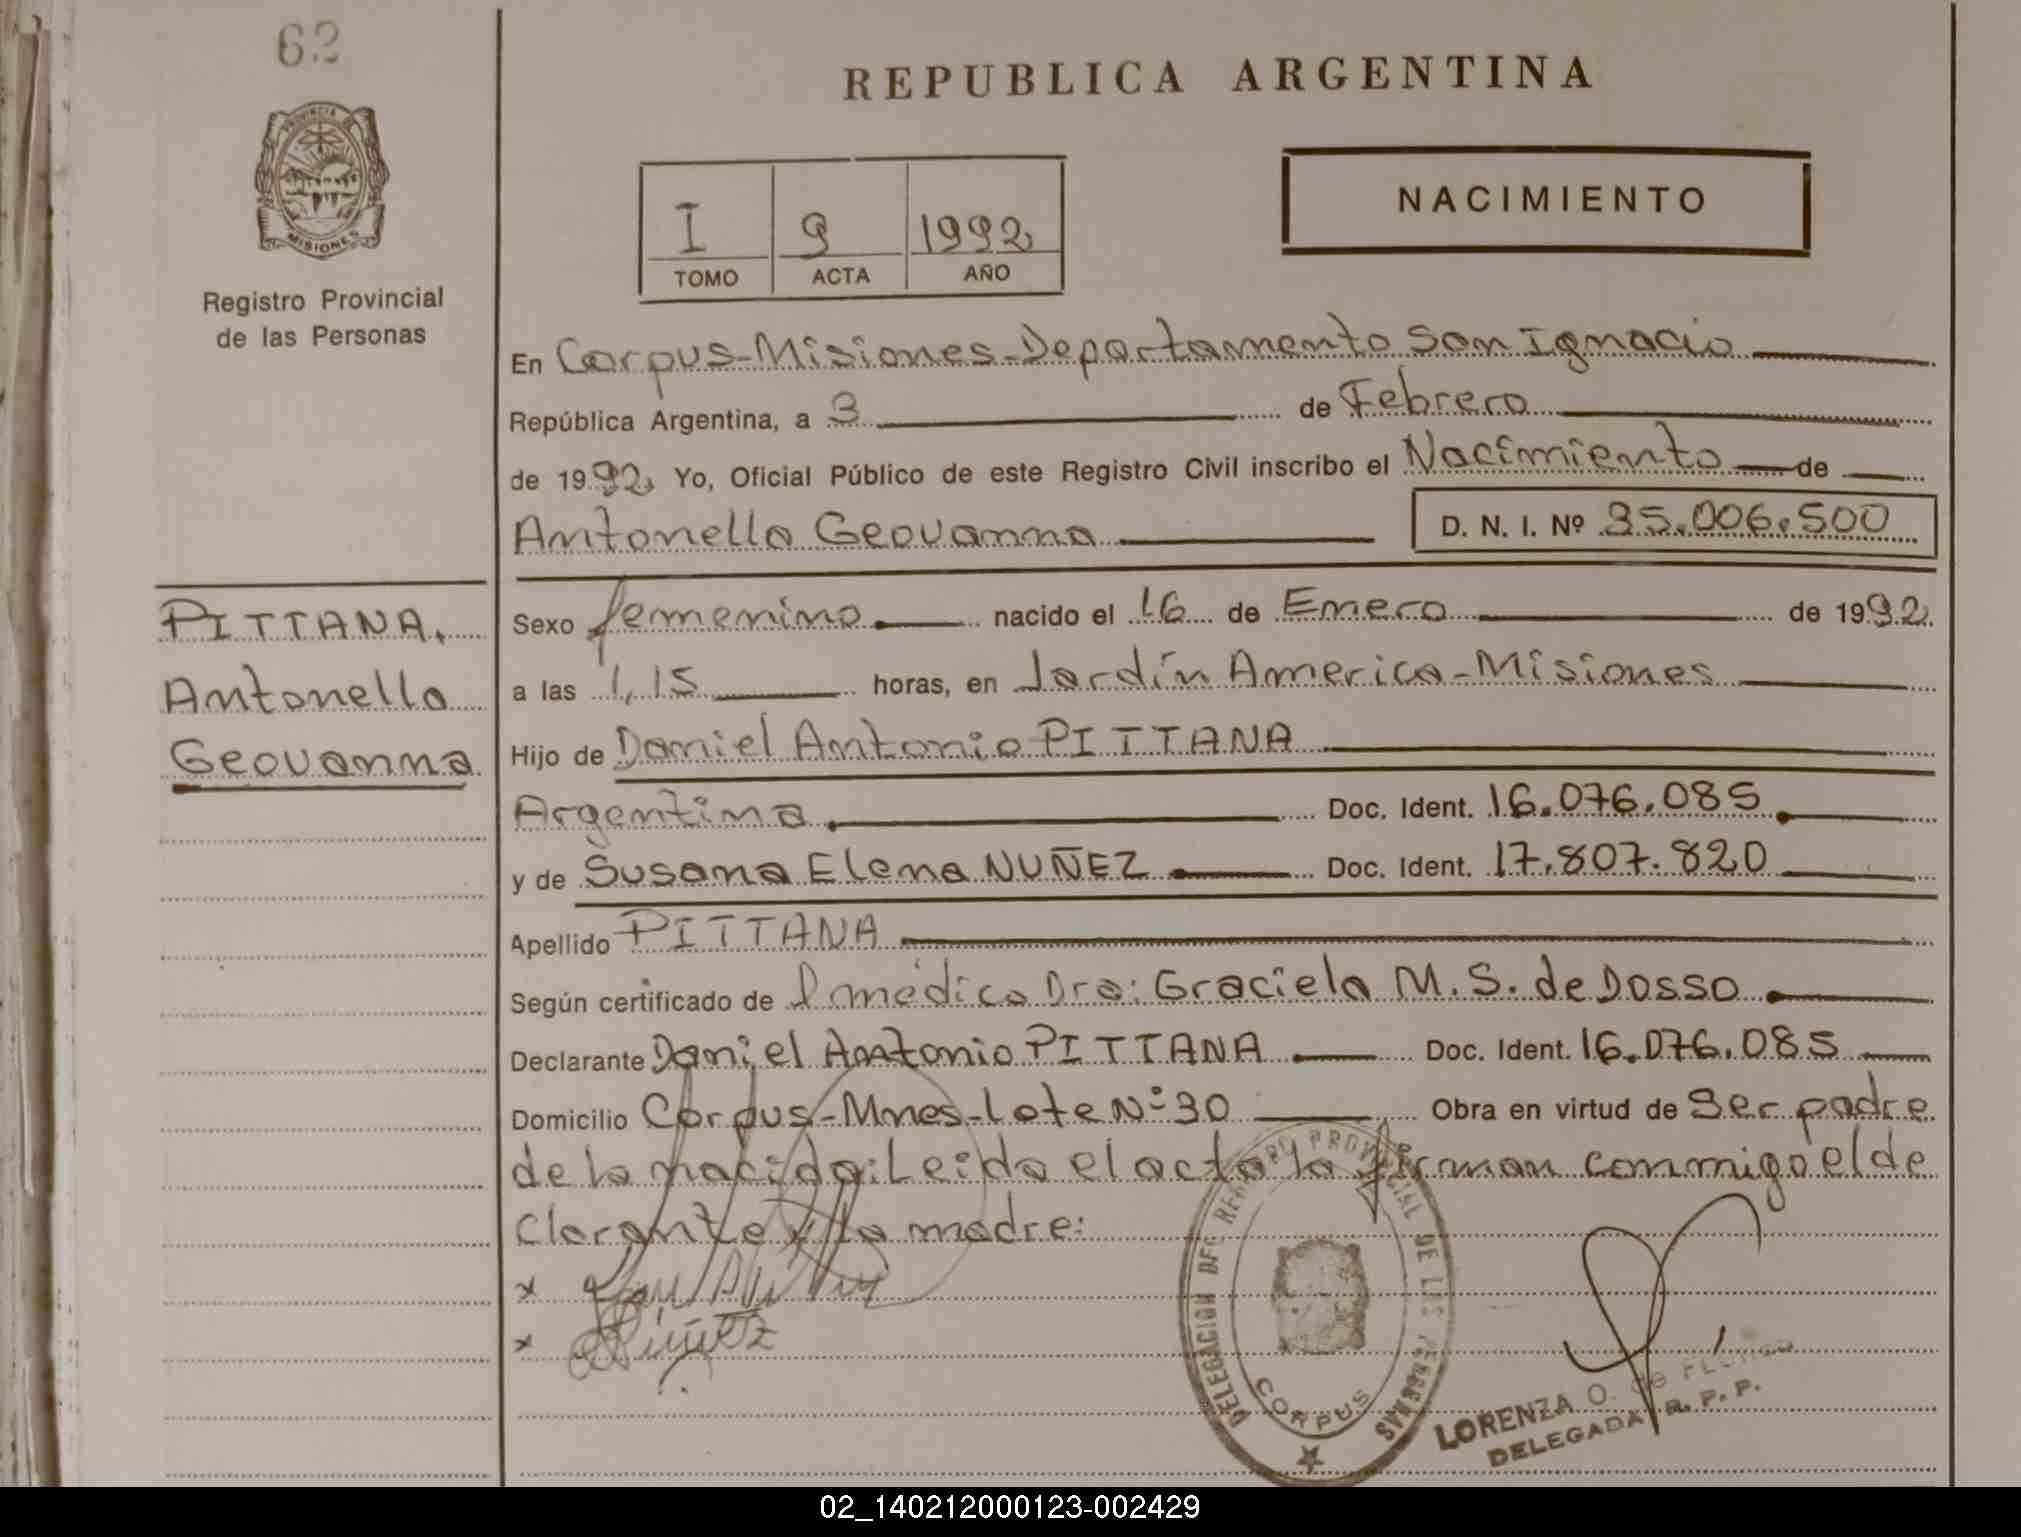 62
REPUBLICA ARGENTINA
PROVINCIA DE
MISIONES
Registro Provincial
de las Personas
I 9 1992
TOMO ACTA AÑO
NACIMIENTO
En Corpus-Misiones-Departamento San Ignacio
República Argentina, a 3 de Febrero
de 1992, Yo, Oficial Público de este Registro Civil inscribo el Nacimiento de
Antonella Geovanna D. N. I. Nº 35.006.500
PITTANA,
Antonella
Geovanna
Sexo femenino nacido el 16 de Enero de 1992
a las 1,15 horas, en Jardín America-Misiones
Hijo de Daniel Antonio PITTANA
Argentina Doc. Ident. 16.076.085
y de Susana Elena NUÑEZ Doc. Ident. 17.807.820
Apellido PITTANA
Según certificado de l médico Dra: Graciela M. S. de Dosso
Declarante Daniel Antonio PITTANA Doc. Ident. 16.076.085
Domicilio Corpus-Mnes-Lote Nº 30 Obra en virtud de Ser padre
de la nacida: Leida el acta la firman conmigo el de
clarante y la madre:
x
x Núñez
DELEGACION DEL REGISTRO PROVINCIAL DE LAS PERSONAS
CORPUS
LORENZA O. de FLORES
DELEGADA R. P. P.
02_140212000123-002429